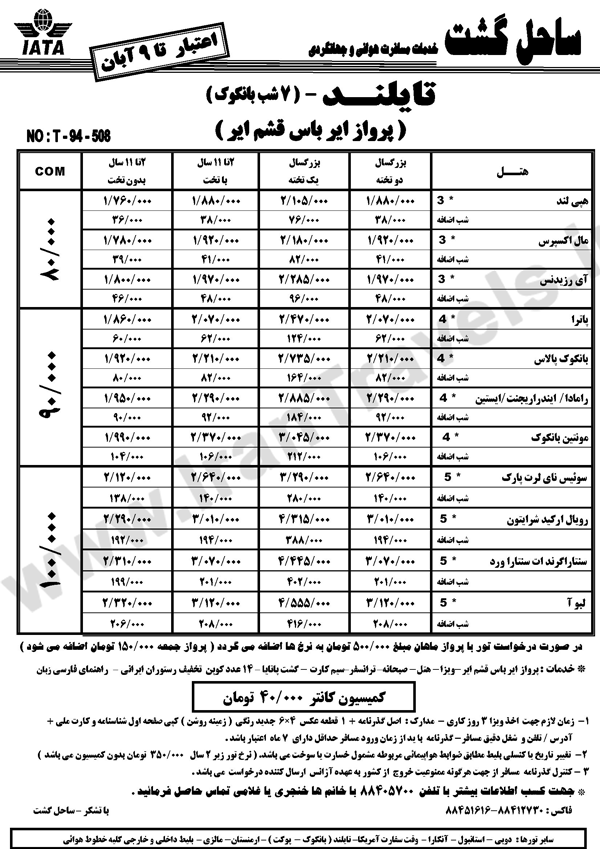 IATA
اعتبار تا ۹ آبان
ساحل گشت
خدمات مسافرت هوائی و جهانگردی
تایلند - ( ۷ شب بانکوک )
( پرواز ایر باس قشم ایر )
NO : T - 94 - 508
هتل | بزرگسال دو تخته | بزرگسال یک تخته | ۲تا ۱۱ سال با تخت | ۲تا ۱۱ سال بدون تخت | COM
هپی لند * 3 | ۱/۸۸۰/۰۰۰ | ۲/۱۰۵/۰۰۰ | ۱/۸۸۰/۰۰۰ | ۱/۷۶۰/۰۰۰ | ۷۰/۰۰۰
شب اضافه | ۳۸/۰۰۰ | ۷۶/۰۰۰ | ۳۸/۰۰۰ | ۳۶/۰۰۰
مال اکسپرس * 3 | ۱/۹۲۰/۰۰۰ | ۲/۱۸۰/۰۰۰ | ۱/۹۲۰/۰۰۰ | ۱/۷۸۰/۰۰۰
شب اضافه | ۴۱/۰۰۰ | ۸۲/۰۰۰ | ۴۱/۰۰۰ | ۳۹/۰۰۰
آی رزیدنس * 3 | ۱/۹۷۰/۰۰۰ | ۲/۲۸۵/۰۰۰ | ۱/۹۷۰/۰۰۰ | ۱/۸۰۰/۰۰۰
شب اضافه | ۴۸/۰۰۰ | ۹۶/۰۰۰ | ۴۸/۰۰۰ | ۴۶/۰۰۰
پاترا * 4 | ۲/۰۷۰/۰۰۰ | ۲/۴۷۰/۰۰۰ | ۲/۰۷۰/۰۰۰ | ۱/۸۶۰/۰۰۰ | ۹۰/۰۰۰
شب اضافه | ۶۲/۰۰۰ | ۱۲۴/۰۰۰ | ۶۲/۰۰۰ | ۶۰/۰۰۰
بانکوک پالاس * 4 | ۲/۲۱۰/۰۰۰ | ۲/۷۳۵/۰۰۰ | ۲/۲۱۰/۰۰۰ | ۱/۹۲۰/۰۰۰
شب اضافه | ۸۲/۰۰۰ | ۱۶۴/۰۰۰ | ۸۲/۰۰۰ | ۸۰/۰۰۰
رامادا/ ایندراریجنت/ایستین * 4 | ۲/۲۹۰/۰۰۰ | ۲/۸۸۵/۰۰۰ | ۲/۲۹۰/۰۰۰ | ۱/۹۵۰/۰۰۰
شب اضافه | ۹۲/۰۰۰ | ۱۸۴/۰۰۰ | ۹۲/۰۰۰ | ۹۰/۰۰۰
مونتین بانکوک * 4 | ۲/۳۷۰/۰۰۰ | ۳/۰۴۵/۰۰۰ | ۲/۳۷۰/۰۰۰ | ۱/۹۹۰/۰۰۰
شب اضافه | ۱۰۶/۰۰۰ | ۲۱۲/۰۰۰ | ۱۰۶/۰۰۰ | ۱۰۴/۰۰۰
سوئیس نای لرت پارک * 5 | ۲/۶۴۰/۰۰۰ | ۳/۲۹۰/۰۰۰ | ۲/۶۴۰/۰۰۰ | ۲/۱۲۰/۰۰۰ | ۱۰۰/۰۰۰
شب اضافه | ۱۴۰/۰۰۰ | ۲۸۰/۰۰۰ | ۱۴۰/۰۰۰ | ۱۳۸/۰۰۰
رویال ارکید شرایتون * 5 | ۳/۰۱۰/۰۰۰ | ۴/۳۱۵/۰۰۰ | ۳/۰۱۰/۰۰۰ | ۲/۲۹۰/۰۰۰
شب اضافه | ۱۹۴/۰۰۰ | ۳۸۸/۰۰۰ | ۱۹۴/۰۰۰ | ۱۹۲/۰۰۰
سنتاراگرند ات سنتارا ورد * 5 | ۳/۰۷۰/۰۰۰ | ۴/۴۴۵/۰۰۰ | ۳/۰۷۰/۰۰۰ | ۲/۳۱۰/۰۰۰
شب اضافه | ۲۰۱/۰۰۰ | ۴۰۲/۰۰۰ | ۲۰۱/۰۰۰ | ۱۹۹/۰۰۰
لبو آ * 5 | ۳/۱۲۰/۰۰۰ | ۴/۵۵۵/۰۰۰ | ۳/۱۲۰/۰۰۰ | ۲/۳۲۰/۰۰۰
شب اضافه | ۲۰۸/۰۰۰ | ۴۱۶/۰۰۰ | ۲۰۸/۰۰۰ | ۲۰۶/۰۰۰
در صورت درخواست تور با پرواز ماهان مبلغ ۵۰۰/۰۰۰ تومان به نرخ ها اضافه می گردد ( پرواز جمعه ۱۵۰/۰۰۰ تومان اضافه می شود )
* خدمات : پرواز ایر باس قشم ایر -ویزا - هتل - صبحانه - ترانسفر-سیم کارت - گشت پاتایا - ۱۴ عدد کوپن تخفیف رستوران ایرانی - راهنمای فارسی زبان
کمیسیون کانتر ۴۰/۰۰۰ تومان
۱- زمان لازم جهت اخذ ویزا ۳ روز کاری - مدارک : اصل گذرنامه + ۱ قطعه عکس ۴×۶ جدید رنگی ( زمینه روشن ) کپی صفحه اول شناسنامه و کارت ملی +
آدرس / تلفن و شغل دقیق مسافر- گذرنامه با ید از زمان ورود مسافر حداقل دارای ۷ ماه اعتبار باشد .
۲- تغییر تاریخ یا کنسلی بلیط مطابق ضوابط هواپیمائی مربوطه مشمول خسارت یا سوخت می باشد. ( نرخ تور زیر ۲ سال ۳۵۰/۰۰۰ تومان بدون کمیسیون می باشد )
۳ - کنترل گذرنامه مسافر از جهت هرگونه ممنوعیت خروج از کشور به عهده آژانس ارسال کننده درخواست می باشد .
* جهت کسب اطلاعات بیشتر با تلفن ۸۸۴۰۵۷۰۰ با خانم ها خنجری یا غلامی تماس حاصل فرمائید .
فاکس : ۸۸۴۱۲۷۳۰-۸۸۴۵۱۶۱۶
با تشکر - ساحل گشت
سایر تورها : دوبی - استانبول - آنکارا - وقت سفارت آمریکا- تایلند ( بانکوک - پوکت ) - ارمنستان - مالزی - بلیط داخلی و خارجی کلیه خطوط هوائی
www.IranTravels.ir